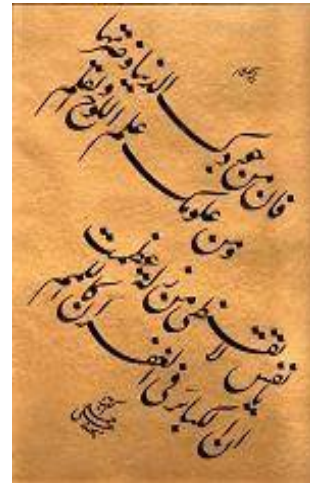 فان من جودک الدنیا و ضرتها
و من علومک علم اللوح و القلم
یا نفس لا تقنطی من زلة عظمت
ان الکبائر فی الغفران کاللمم